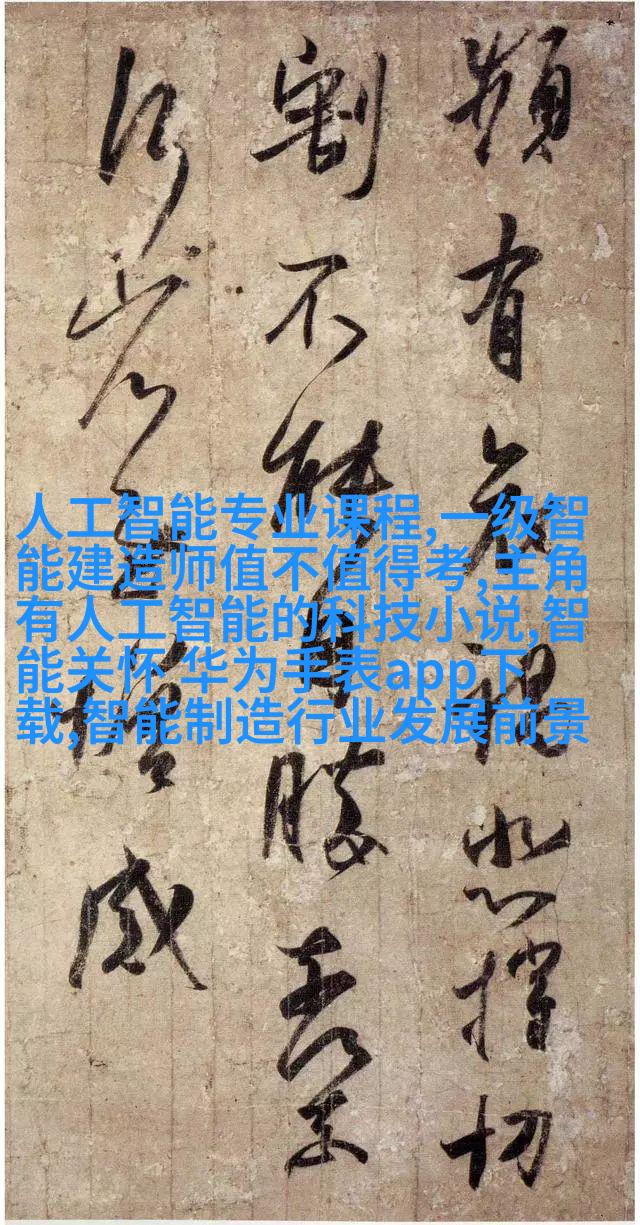 頻有哀禍悲摧切
割不能自勝奈何奈
何省慰增感
人工智能专业课程,一级智
能建造师值不值得考,主角
有人工智能的科技小说,智
能关怀 华为手表app下
载,智能制造行业发展前景